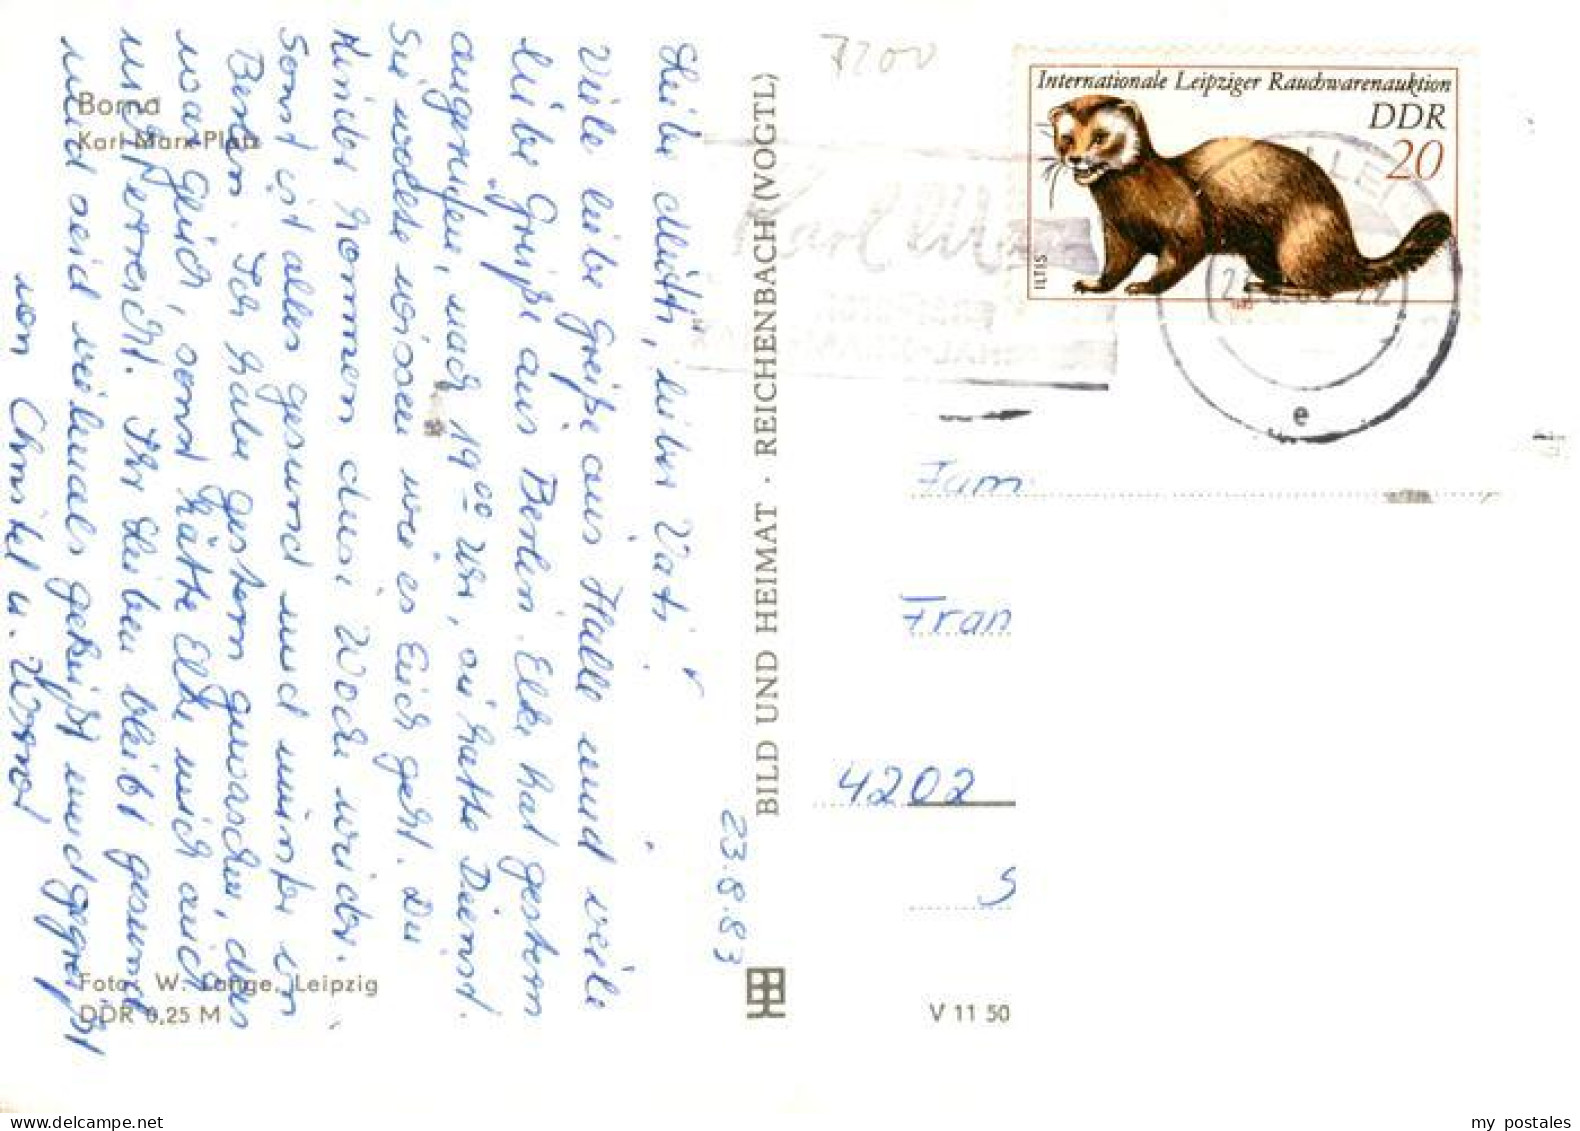 Borna
Karl-Marx-Platz
Liebe Mutti, lieber Vati!
Viele liebe Grüße aus Halle und viele
liebe Grüße aus Berlin. Elke hat gestern
angerufen, nach 19⁰⁰ Uhr, sie hatte Dienst.
Sie wollte wissen wie es Euch geht. Die
Kinder kommen diese Woche wieder.
Sonst ist alles gesund und munter in
Berlin. Ich habe gestern gewaschen, das
war gleich, sonst hätte Elke mich auch
nicht erreicht. Ihr Lieben bleibt gesund
und seid vielmals geküßt und gegrüßt
von Christel u.
23.8.83
Foto: W. Lange, Leipzig
DDR 0,25 M
BILD UND HEIMAT · REICHENBACH (VOGTL)
V 11 50
7200
Internationale Leipziger Rauchwarenauktion
DDR
20
ILTIS
Karl Marx
e
Fam
Fran
4202
S
my postales